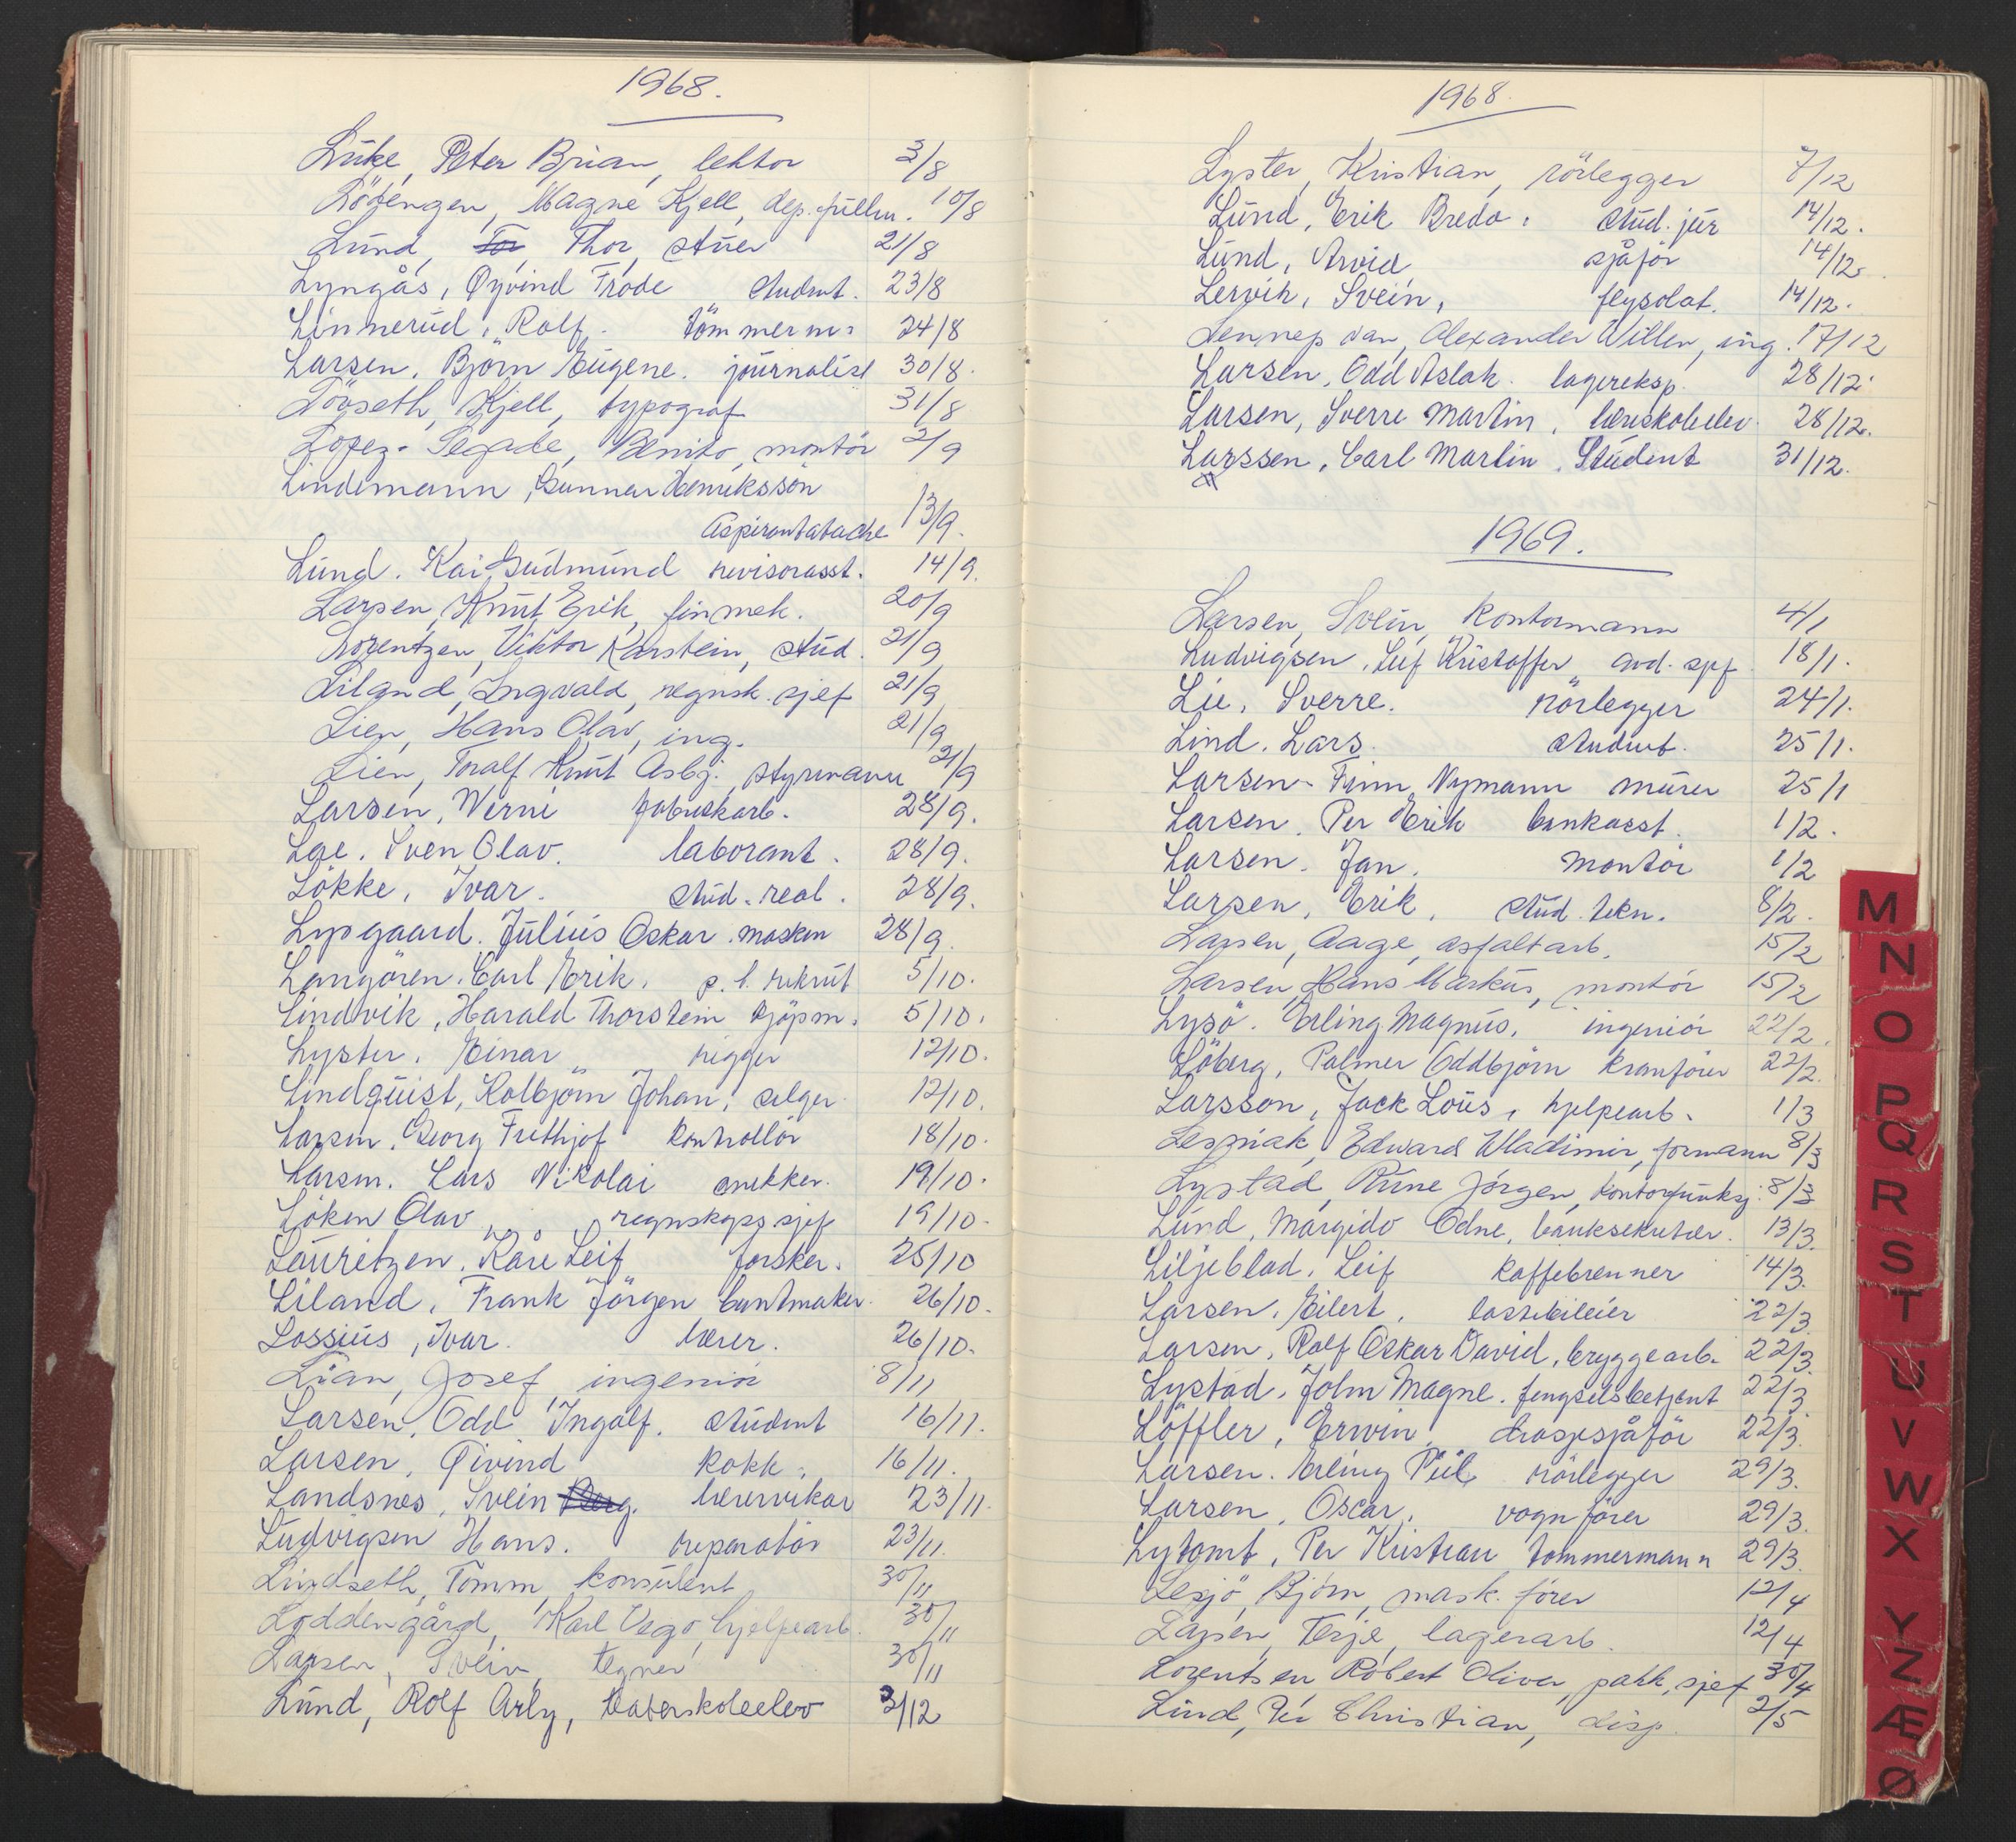 1968.
Luke, Peter Brian, lektor 3/8
Lödengen, Magne Kjell, dep. fullm. 10/8
Lund, Tor Thor, stuer 21/8
Lyngås, Øyvind Frode student. 23/8
Linnerud, Rolf. tömmerm. 24/8
Larsen, Björn Eugene. journalist 30/8.
Tövseth, Kjell, typograf 31/8
Lopez-Segade, Benito, montör 2/9
Lindemann, Gunnar Henriksson
Aspirantatache 13/9.
Lund. Kai Gudmund revisorasst. 14/9.
Larsen, Knut Erik, finmek. 20/9
Lorentzen, Viktor Karstein, stud. 21/9
Liland, Ingvald, regnsk. sjef 21/9
Lien, Hans Olav, ing. 21/9
Lien, Toralf Knut Asbj. styrmann 21/9
Larsen, Werni fabrikkarb. 28/9.
Lae. Sven Olav. laborant. 28/9.
Lökke, Ivar. stud. real. 28/9.
Lysgaard. Julius Oskar. maskm 28/9.
Langören. Carl Erik. p. l. rekrut 5/10.
Lindvik, Harald Thorstein kjöpm. 5/10.
Lyster. Einar rigger 12/10.
Lindquist, Kolbjörn Johan, selger 12/10.
Larsen, Georg Frithjof kontrollör 18/10.
Larsen. Lars Nikolai snekker. 19/10.
Löken Olav regnskapssjef 19/10.
Lauritzen. Kåre Leif forsker. 25/10
Liland, Frank Jörgen buntmaker. 26/10.
Lossius, Ivar. lærer. 26/10.
Lian, Josef, ingeniör 8/11
Larsen, Odd Ingolf. student 16/11.
Larsen, Öivind kokk. 16/11.
Landsnes, Svein Berg. lærervikar 23/11.
Ludvigsen Hans. reparatör 23/11.
Lindseth, Tomm, konsulent 30/11
Loddengård, Karl Vego, hjelpearb. 30/11
Larsen, Svein, tegner 30/11
Lund, Rolf Arly, teaterskoleelev 3/12
1968.
Lyster, Kristian, rörlegger 7/12
Lund, Erik Bredo, stud. jur 14/12.
Lund, Arvid sjåför 14/12.
Lervik, Svein, flysolat. 14/12.
Lennep van, Alexander Willem, ing. 17/12
Larsen, Odd Aslak. lagereksp. 28/12.
Larsen, Sverre Martin, læreskoleelev. 28/12.
Larssen, Carl Martin. Student 31/12.
1969.
Larsen, Svein, kontormann 4/1
Ludvigsen, Leif Kristoffer avd. sjef 18/1.
Lie, Sverre. rörlegger 24/1.
Lind. Lars. student. 25/1.
Larsen - Finn Nymann murer 25/1
Larsen, Per Erik bankasst. 1/2.
Larsen. Jan. montör 1/2
Larsen, Erik, stud. tekn. 8/2.
Larsen, Aage, asfaltarb. 15/2
Larsen, Hans Markus, montör 15/2
Lysö. Erling Magnus, ingeniör 22/2.
Löberg, Palmer Oddbjörn kranförer 22/2.
Larsson, Jack Louis, hjelpearb. 1/3
Lesniak, Edward Wladimir, formann 8/3
Lystad, Rune Jörgen, kontorfunksj. 8/3
Lund, Margido Odne, banksekretær. 13/3.
Liljeblad. Leif kaffebrenner 14/3.
Larsen, Eilert, lastebileier 22/3
Larsen, Rolf Oskar David, bryggearb. 22/3.
Lystad, John Magne. fengselsbetjent 22/3
Löffler, Erwin drosjesjåför 22/3.
Larsen. Erling Piil rörlegger 29/3.
Larsen, Oscar. vognförer 29/3.
Lytomt, Per Kristian tømmermann 29/3.
Lesjö, Björn, mask. förer 12/4
Larsen, Terje, lagerarb. 12/4
Lorentsen Robert Oliver, pakk. sjef 30/4
Lind, Per Christian, disp. 2/5
M
N
O
P
Q
R
S
T
U
V
W
X
Y
Z
Æ
Ø